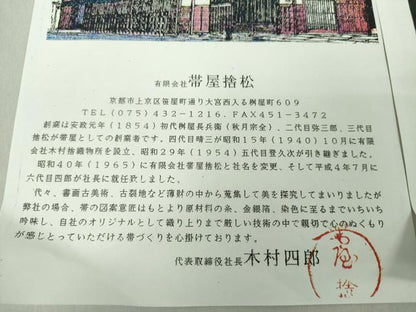 有限会社 帯屋捨松
京都市上京区笹屋町通り大宮西入る桝屋町609
TEL(075)432-1216. FAX451-3472
創業は安政元年(1854)初代桝屋長兵衛(秋月宗全)、二代目弥三郎、三代目
捨松が帯屋としての創業者です。四代目時三が昭和15年(1940)10月に有限
会社木村捨織物所を設立、昭和29年(1954)五代目登久次が引き継ぎました。
昭和40年(1965)に有限会社帯屋捨松と社名を変更、そして平成4年7月に
六代目四郎が社長に就任致しました。
代々、書画古美術、古裂地など薄財の中から蒐集して美を探究してまいりましたが
弊社の場合、帯の図案意匠はもとより原材料の糸、金銀箔、染色に至るまでいちいち
吟味し、自社のオリジナルとして織り上りまで厳しい技術の中で親切で心のぬくもり
が感じとっていただける帯づくりを心掛けております。
代表取締役社長 木村四郎
捨